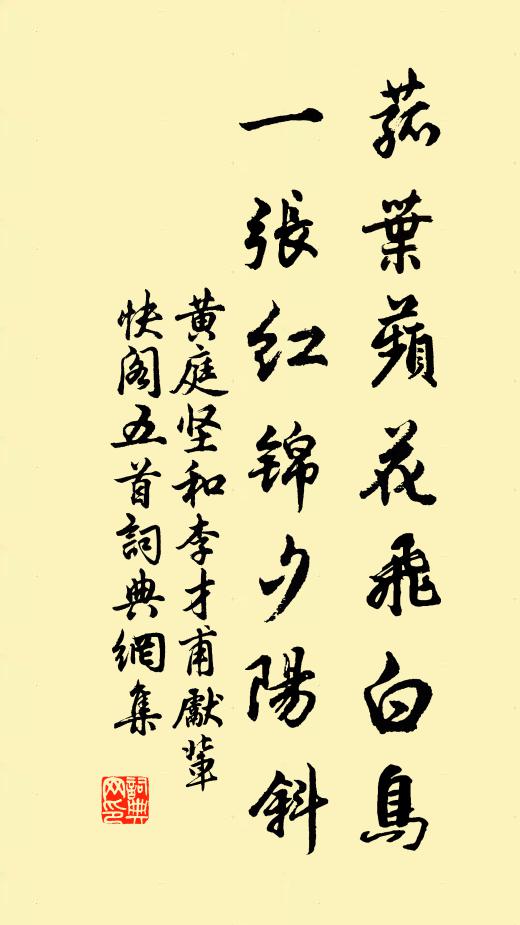 菰葉蘋花飛白鳥
一張紅錦夕陽斜
黄庭坚和李才甫獻輩
快阁五首詞典網集
詞典
网印